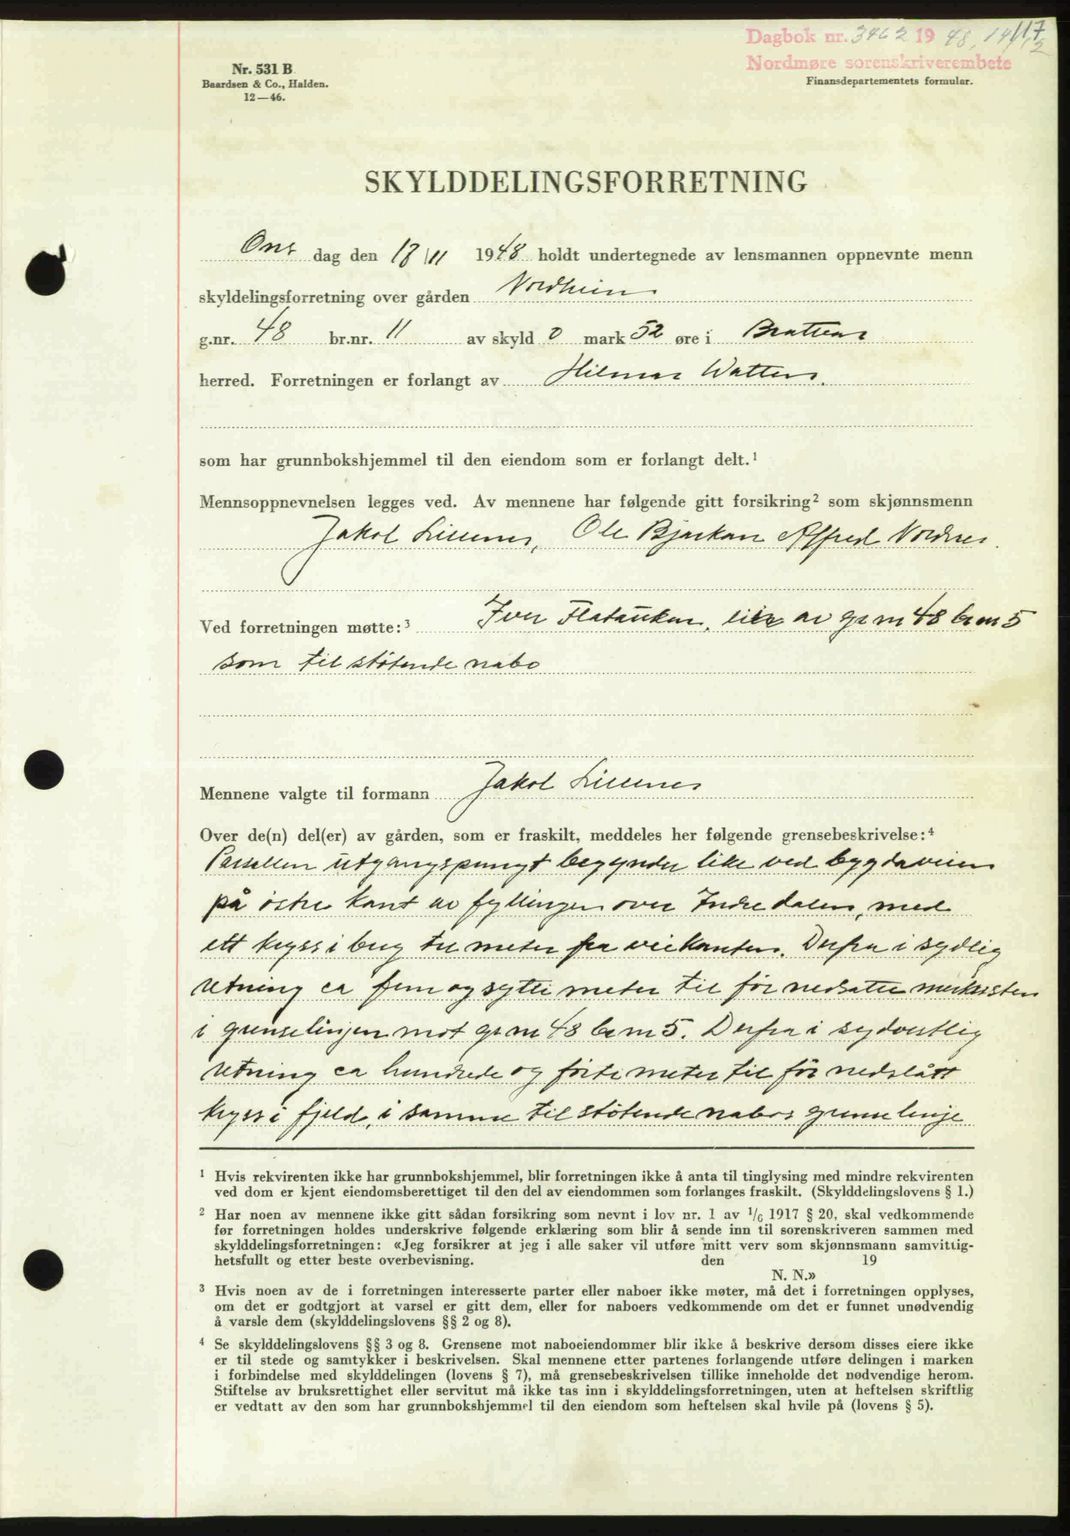 Dagbok nr. 3462 19 48, 14/12
117
Nordmøre sorenskriverembete
Finansdepartementets formular.
Nr. 531 B
Baardsen & Co., Halden.
12—46.
SKYLDDELINGSFORRETNING
Ons dag den 18/11 1948 holdt undertegnede av lensmannen oppnevnte menn
skyldelingsforretning over gården Nordheim
g.nr. 48 br.nr. 11 av skyld 0 mark 52 øre i
herred. Forretningen er forlangt av Hilmar
som har grunnbokshjemmel til den eiendom som er forlangt delt.¹
Mennsoppnevnelsen legges ved. Av mennene har følgende gitt forsikring² som skjønnsmenn
Jakob Lillenes, Ole Bjerkan Alfred Nordnes.
Ved forretningen møtte:³ Iver, eier av gr nr 48 br nr 5
som til støtende nabo
Mennene valgte til formann Jakob Lillenes
Over de(n) del(er) av gården, som er fraskilt, meddeles her følgende grensebeskrivelse:⁴
Parsellen utgangspungt begynder like ved bygdaveien
på østre kant av fyllingen over Indredalen, med
ett kryss i berg ti meter fra veikanten. Derfra i sydlig
retning ca fem og sytti meter til før nedsatte merkesten
i grenselinjen mot gr nr 48 br nr 5. Derfra i sydvestlig
retning ca hundrede og førti meter til før nedslått
kryss i fjeld, i samme til støtende nabos grense linje
¹ Hvis rekvirenten ikke har grunnbokshjemmel, blir forretningen ikke å anta til tinglysing med mindre rekvirenten
ved dom er kjent eiendomsberettiget til den del av eiendommen som forlanges fraskilt. (Skylddelingslovens § 1.)
² Har noen av mennene ikke gitt sådan forsikring som nevnt i lov nr. 1 av 1/6 1917 § 20, skal vedkommende
før forretningen holdes underskrive følgende erklæring som blir å sende inn til sorenskriveren sammen med
skylddelingsforretningen: «Jeg forsikrer at jeg i alle saker vil utføre mitt verv som skjønnsmann samvittig-
hetsfullt og etter beste overbevisning. den 19
N. N.»
³ Hvis noen av de i forretningen interesserte parter eller naboer ikke møter, må det i forretningen opplyses,
om det er godtgjort at varsel er gitt dem, eller for naboers vedkommende om det er funnet unødvendig
å varsle dem (skylddelingslovens §§ 2 og 8).
⁴ Se skylddelingslovens §§ 3 og 8. Grensene mot naboeiendommer blir ikke å beskrive dersom disses eiere ikke
er til stede og samtykker i beskrivelsen. Skal mennene etter partenes forlangende utføre delingen i marken
i forbindelse med skylddelingen (lovens § 7), må grensebeskrivelsen tillike inneholde det nødvendige herom.
Stiftelse av bruksrettighet eller servitut må ikke tas inn i skylddelingsforretningen, uten at heftelsen skriftlig
er vedtatt av den som har grunnbokshjemmel til den eiendom som heftelsen skal hvile på (lovens § 5).